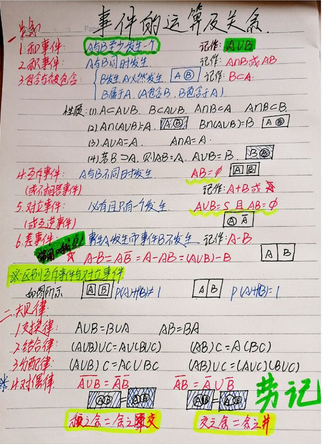 事件的运算及关系.
一.关系
1.和事件: A与B至少发生一个 记作: A∪B
2.积事件: A与B同时发生 记作: A∩B或AB
3.包含与被包含 {B发生A必然发生 A B 记作: B⊂A.
B属于A.(A包含B.B包含于A)
性质: (1) A⊂A∪B. B⊂A∪B A∩B⊂A. A∩B⊂B.
(2) A∩(A∪B)=A. B∩(A∪B)=B
(3) A∪A=A. A∩A=A.
(4) 若B⊃A, 则AB=A. A∪B=B.
4.互斥事件: A与B不同时发生 AB=∅
(或不相容事件) 记作: A+B或
5.对立事件: 必有且只有个发生 A∪B=S且AB=∅
(或互逆事件) A Ā
6.差事件: 事件A发生而事件B不发生. 记作: A-B
A-B=AB̄=A-AB=(A∪B)-B A B
※区别互斥事件与对立事件
如图所示 A B P(A+B)≠1 A B P(A+B)=1
二.大定律
1.交换律: A∪B=B∪A AB=BA
2.结合律: (A∪B)∪C=A∪(B∪C) (AB)C=A(BC)
3.分配律: (A∪B)C=AC∪BC (AB)∪C=(A∪C)(B∪C)
※4.对偶律
牢记
和之余=余之交 交之余=余之并